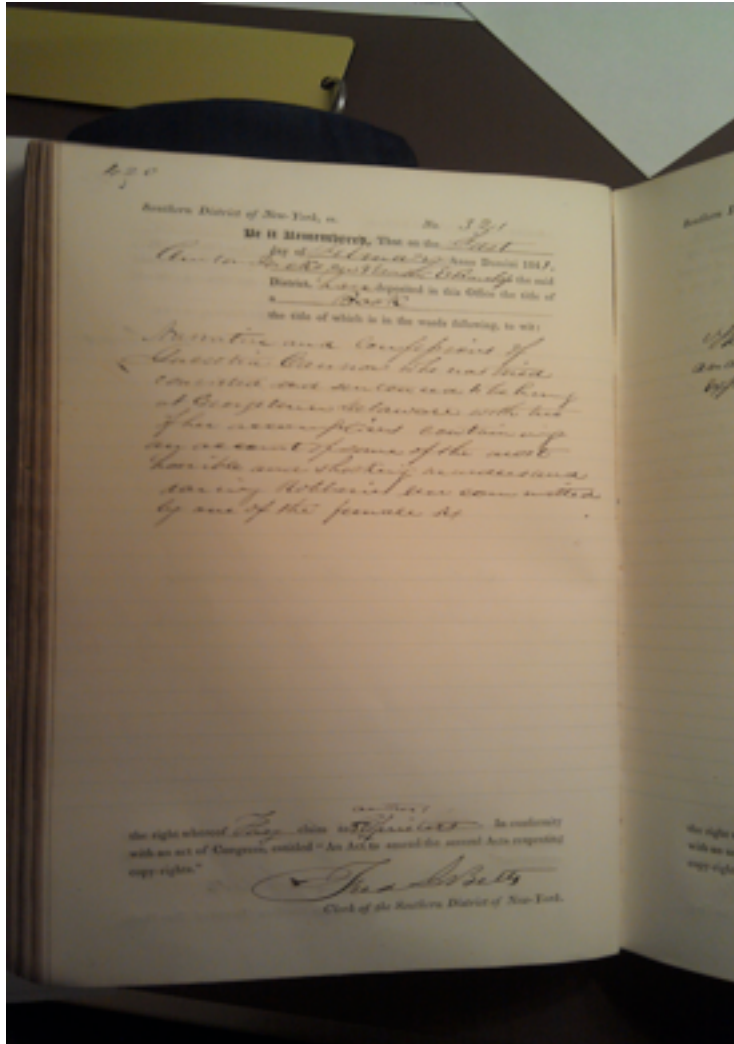 420
Southern District of New-York, ss. No. 321
Be it Remembered, That on the Last
day of February Anno Domini 1841,
the said
District, have deposited in this Office the title of
a Book
the title of which is in the words following, to wit:
Narrative and Confessions of
Lucretia Cannon who was tried
convicted and sentenced to be hung
at Georgetown Delaware with two
of her accomplices containing
an account of some of the most
horrible and shocking murders and
daring Robberies ever committed
by one of the female sex
authors
the right whereof They claim as Proprietors In conformity
with an act of Congress, entitled "An Act to amend the several Acts respecting
copy-rights."
Fred J Betts
Clerk of the Southern District of New-York.
Southern D
the right
with an
copy-rig